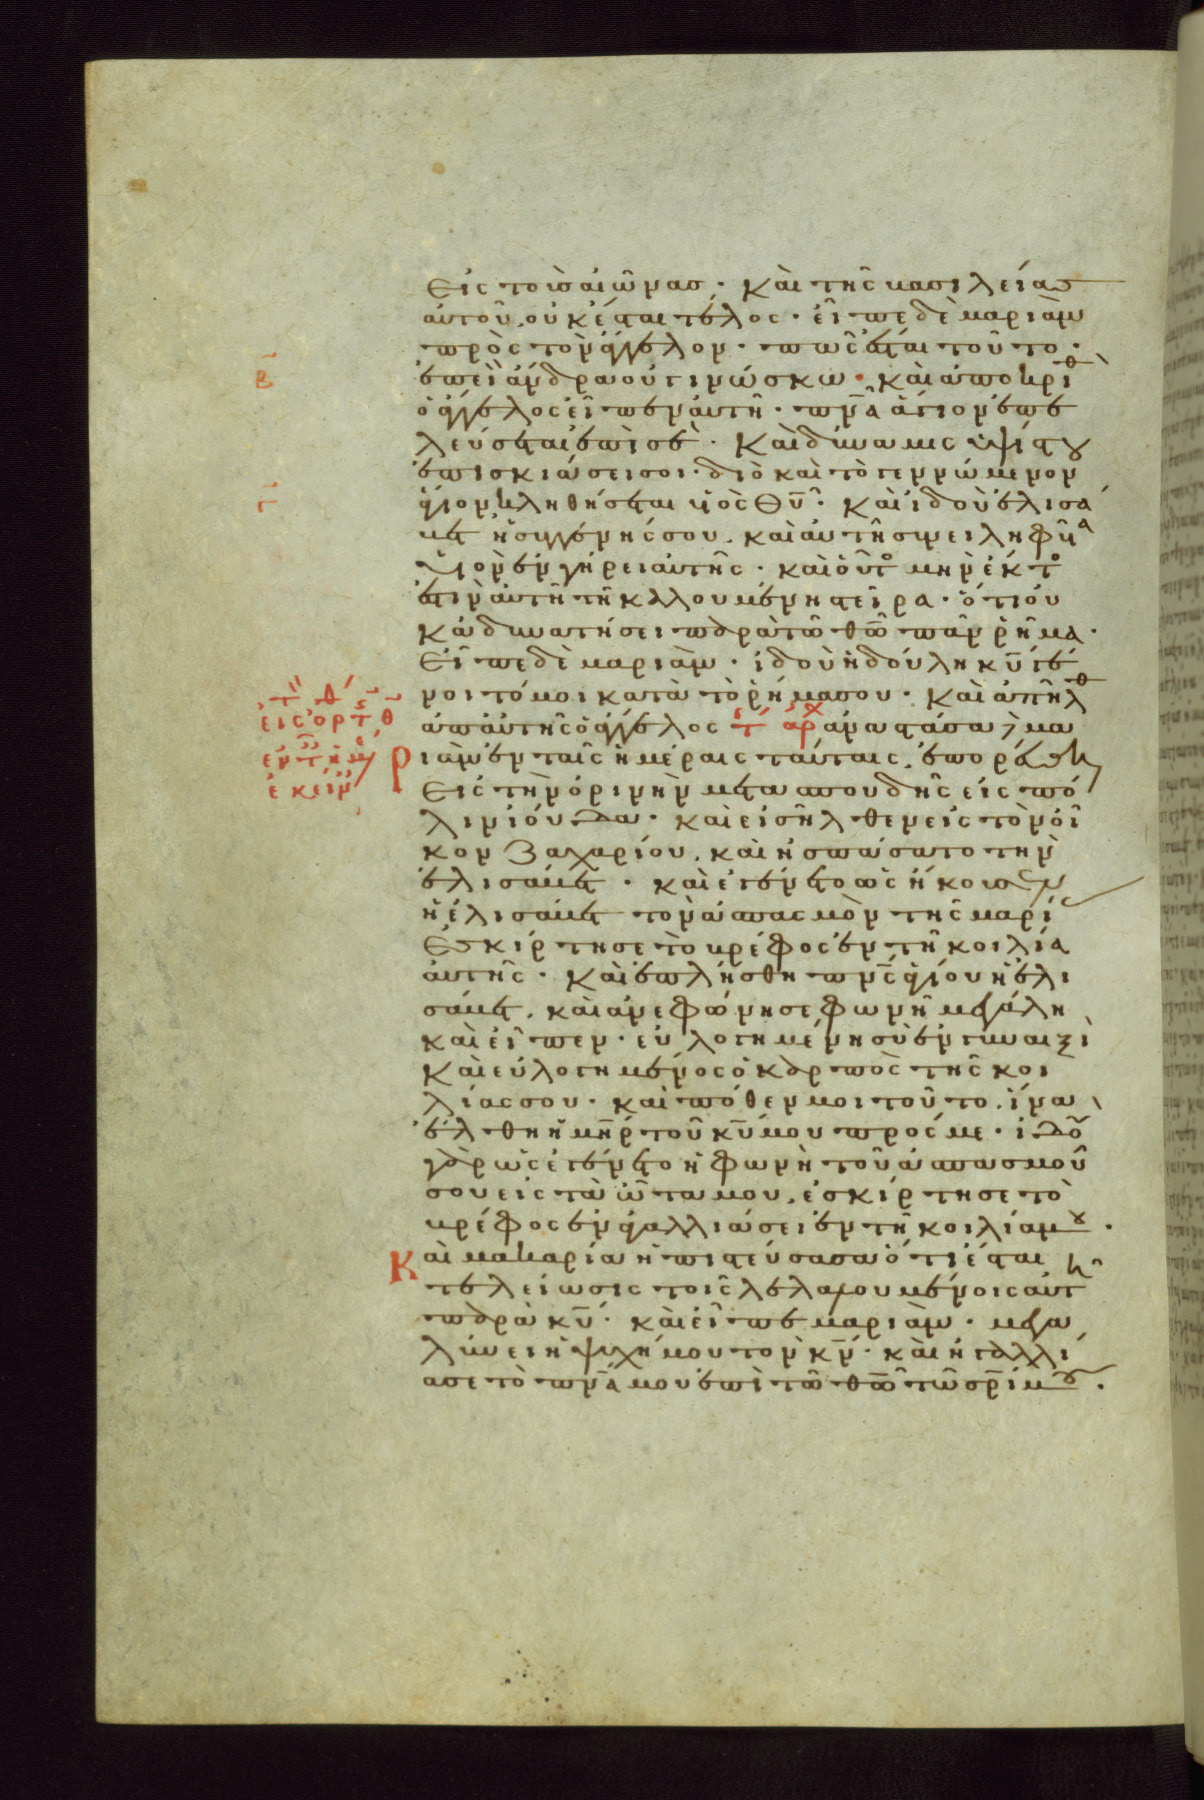 εἰς τοὺς αἰῶνας · καὶ τῆς βασιλείας
αὐτοῦ, οὐκ ἔσται τέλος · εἶπε δὲ μαριὰμ
πρὸς τὸν ἄγγελον · πῶς ἔσται τοῦτο ·
β ἐπεὶ ἄνδρα οὐ γινώσκω · καὶ ἀποκριθ
ὁ ἄγγελος εἶπεν αὐτῆ · πνα ἅγιον ἐπε
λεύσεται ἐπὶ σὲ · καὶ δύναμις ὑψίστου
ἐπισκιάσει σοι · διὸ καὶ τὸ γεννώμενον
γ ἅγιον κληθήσεται υἱὸς θυ · καὶ ἰδοὺ ἐλισά
βετ ἡ συγγενής σου, καὶ αὐτὴ συνειληφυῖα
υἱὸν ἐν γήρει αὐτῆς · καὶ οὗτο μὴν ἕκτο
ἐστὶν αὐτῆ τῆ καλουμένη στείρα · ὅτι οὐ
κ ἀδυνατήσει παρὰ τῶ θῶ πᾶν ῥῆμα ·
εἶπε δὲ μαριὰμ · ἰδοὺ ἡ δούλη κυ γέ
νοιτό μοι κατὰ τὸ ῥῆμα σου · καὶ ἀπῆλθ
ἀπ αὐτῆς ὁ ἄγγελος τ αρχ ἀναστᾶσα μα
ριὰμ ἐν ταῖς ἡμέραις ταύταις, ἐπορεύθη
εἰς τὴν ὀρινὴν μετὰ σπουδῆς εἰς πό
λιν ἰούδα · καὶ εἰσῆλθεν εἰς τὸν οἶ
κον ζαχαρίου, καὶ ἠσπάσατο τὴν
ἐλισάβετ · καὶ ἐγένετο ὡς ἤκουσεν
ἡ ἐλισάβετ τὸν ἀσπασμὸν τῆς μαρί
ἐσκίρτησε τὸ βρέφος ἐν τῆ κοιλία
αὐτῆς · καὶ ἐπλήσθη πνς ἁγίου ἡ ἐλι
σάβετ, καὶ ἀνεφώνησε φωνῆ μεγάλη
καὶ εἶπεν · εὐλογημένη σὺ ἐν γυναιξὶ
καὶ εὐλογημένος ὁ καρπὸς τῆς κοι
λίας σου · καὶ πόθεν μοι τοῦτο, ἵνα
ἔλθη ἡ μηρ τοῦ κυ μου πρός με · ἰδοῦ
γὰρ ὡς ἐγένετο ἡ φωνὴ τοῦ ἀσπασμοῦ
σου εἰς τὰ ὦτα μου, ἐσκίρτησε τὸ
βρέφος ἐν ἀγαλλιάσει ἐν τῆ κοιλία μου ·
καὶ μακαρία ἡ πιστεύσασα ὅτι ἔσται
τελείωσις τοῖς λελαλουμένοις αὐτῆ
παρὰ κυ · καὶ εἶπε μαριὰμ · μεγα
λύνει ἡ ψυχή μου τὸν κν · καὶ ἠγαλλί
ασε τὸ πνα μου ἐπὶ τῶ θῶ τῶ σρί μου ·